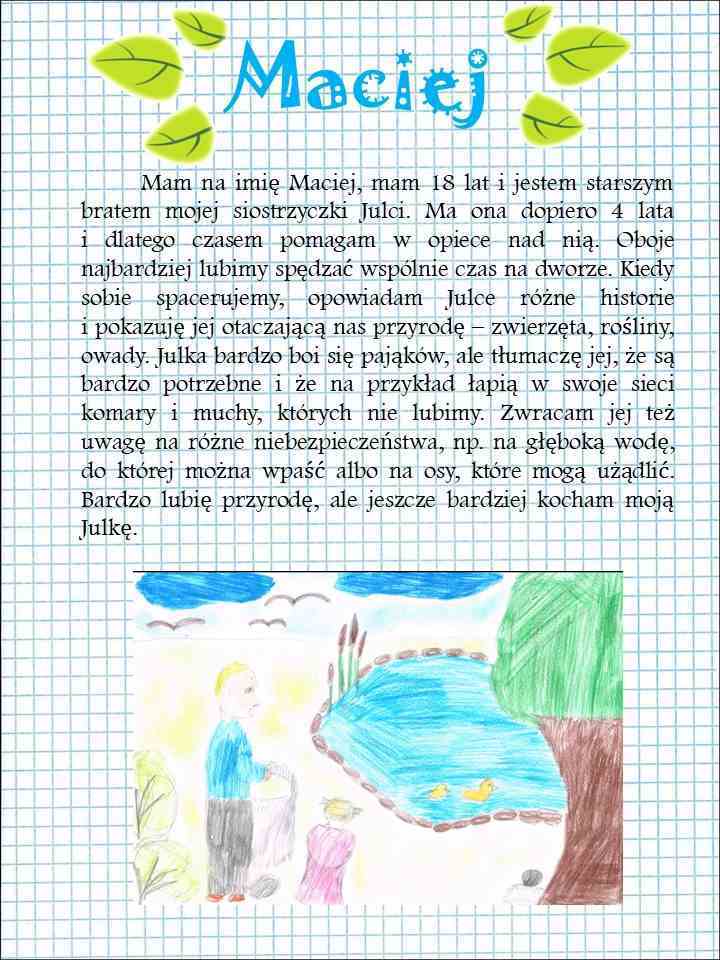 Maciej
Mam na imię Maciej, mam 18 lat i jestem starszym
bratem mojej siostrzyczki Julci. Ma ona dopiero 4 lata
i dlatego czasem pomagam w opiece nad nią. Oboje
najbardziej lubimy spędzać wspólnie czas na dworze. Kiedy
sobie spacerujemy, opowiadam Julce różne historie
i pokazuję jej otaczającą nas przyrodę – zwierzęta, rośliny,
owady. Julka bardzo boi się pająków, ale tłumaczę jej, że są
bardzo potrzebne i że na przykład łapią w swoje sieci
komary i muchy, których nie lubimy. Zwracam jej też
uwagę na różne niebezpieczeństwa, np. na głęboką wodę,
do której można wpaść albo na osy, które mogą użądlić.
Bardzo lubię przyrodę, ale jeszcze bardziej kocham moją
Julkę.